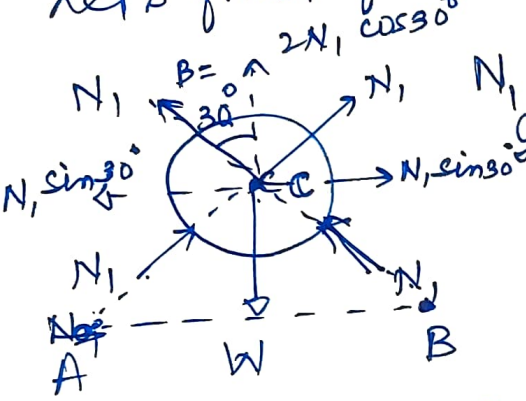 let's
2N₁ cos30°
B=
N₁
30°
N₁
N₁
N₁ sin30°
C
N₁ sin30°
N₁
N₁
A
W
B